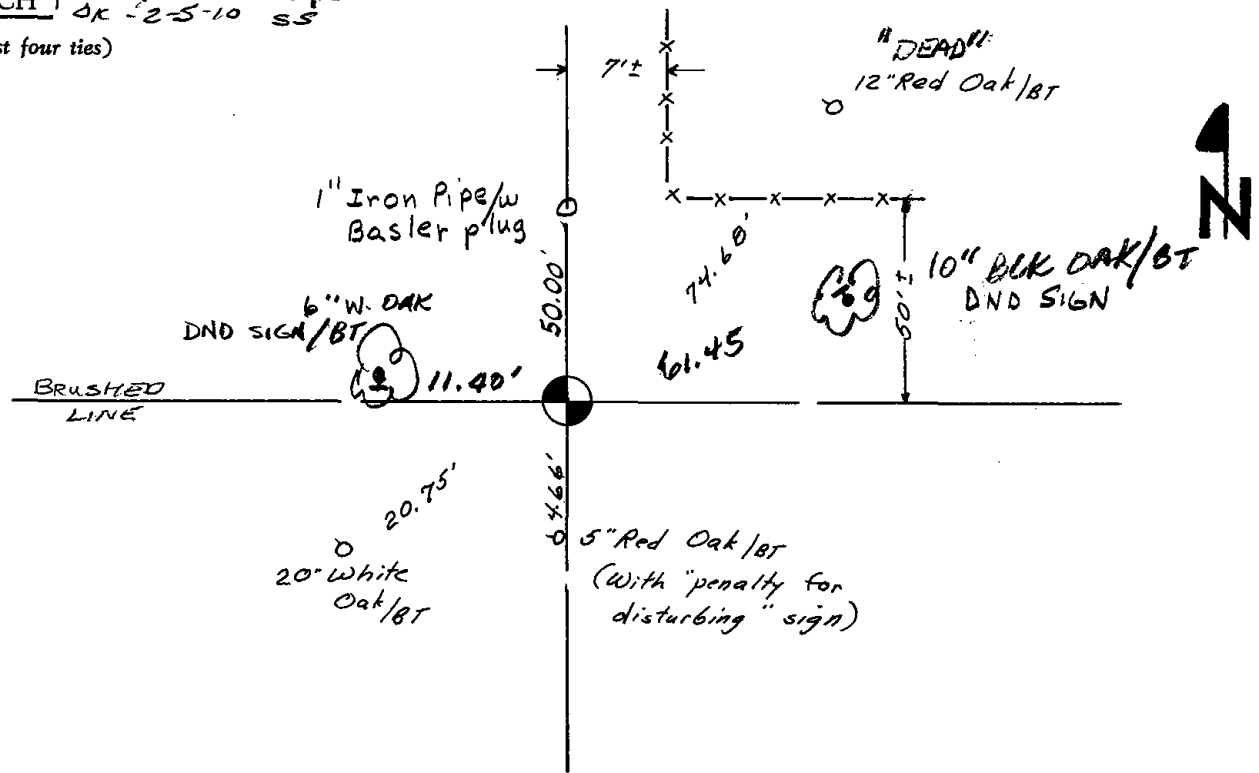 CH
OK -2-5-10 SS
st four ties)
7'±
"DEAD"
12" Red Oak/BT
N
1" Iron Pipe/w
Basler plug
50.00'
74.68'
10" BLK OAK/BT
DND SIGN
50'±
6" W. OAK
DND SIGN/BT
11.40'
61.45
BRUSHED
LINE
20.75'
64.66'
20" White
Oak/BT
5" Red Oak/BT
(With "penalty for
disturbing" sign)